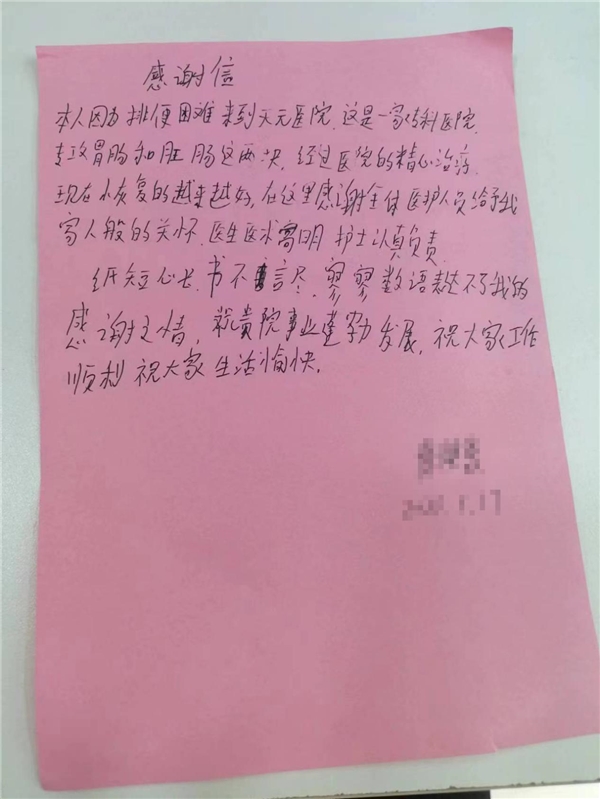 感谢信
本人因为排便困难来到天元医院.这是一家专科医院.
专攻胃肠和肛肠这两块.经过医院的精心治疗.
现在恢复的越来越好.在这里感谢全体医护人员给予我
家人般的关怀.医生医术高明 护士认真负责.
纸短心长.书不言尽.寥寥数语表达不了我的
感谢之情,祝贵院事业蓬勃发展.祝大家工作
顺利 祝大家生活愉快.